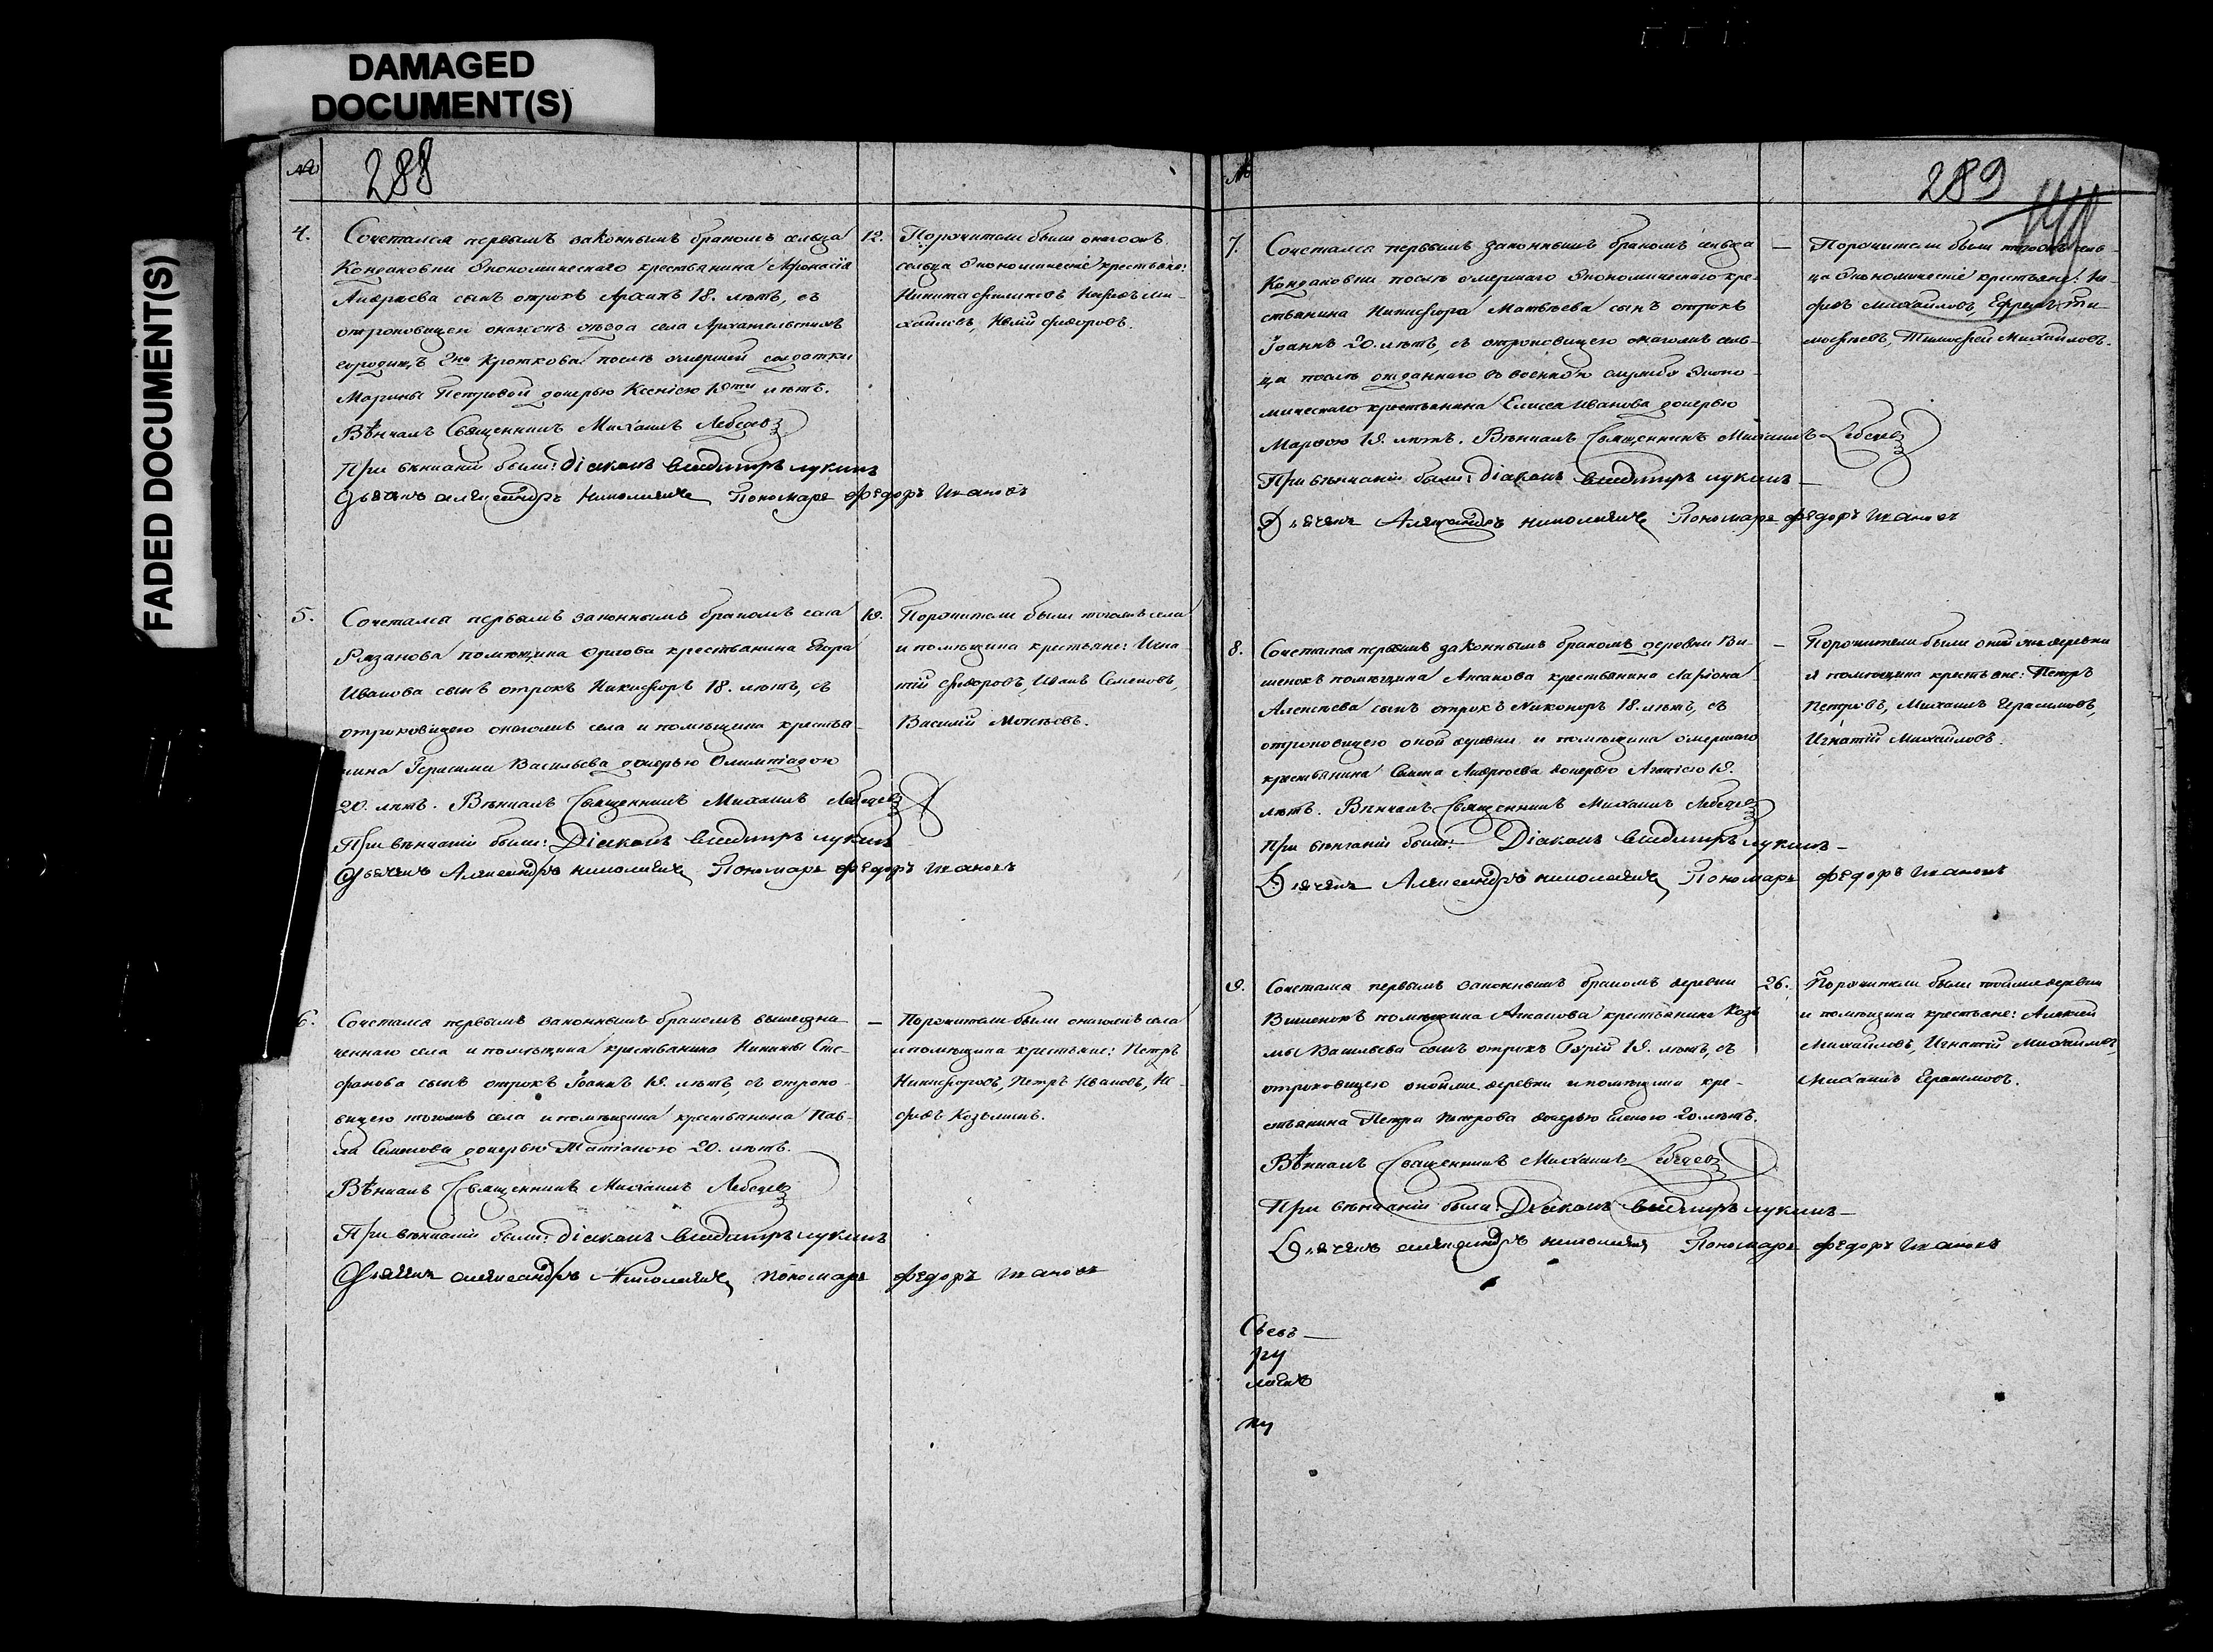 DAMAGED
DOCUMENT(S)
FADED DOCUMENT(S)
№
288
4.
Сочетался первымъ законнымъ бракомъ сельца
Кондаковки экономическаго крестьянина Афонасія
Андреева сынъ отрокъ 18. лѣтъ, съ
отроковицею уѣзда села
Кроткова послѣ умершей солдатки
Марины Петровой дочерью Ксеніею лѣтъ.
Вѣнчалъ Священникъ Михаилъ Лебедевъ
При вѣнчаніи были: діаконъ лукинъ
Александръ Пономарь федоръ ивановъ
12.
Поручители были
сельца экономическіе крестьяне:
Никита Ми-
хайловъ, Федоровъ.
5.
Сочетался первымъ законнымъ бракомъ села
Рязанова помѣщика крестьянина Егора
Иванова сынъ отрокъ Никифоръ 18. лѣтъ, съ
отроковицею села и помѣщика крестья-
нина Герасима Васильева дочерью Олимпіадою
20. лѣтъ. Вѣнчалъ Священникъ Михаилъ Лебедевъ
При вѣнчаніи были: Діаконъ лукинъ
Александръ Пономарь федоръ ивановъ
19.
Поручители были тогожъ села
и помѣщика крестьяне: Игна-
тій Федоровъ, Иванъ Семеновъ,
Василій
6.
Сочетался первымъ законнымъ бракомъ вышеозна-
ченнаго села и помѣщика крестьянина Никиты Сте-
фанова сынъ отрокъ Іоаннъ 19. лѣтъ, съ отроко-
вицею тогожъ села и помѣщика крестьянина Пав-
ла Семенова дочерью Татіаною 20. лѣтъ.
Вѣнчалъ Священникъ Михаилъ Лебедевъ
При вѣнчаніи были: діаконъ лукинъ
Александръ пономарь федоръ ивановъ
—
Поручители были онагожъ села
и помѣщика крестьяне: Петръ
Никифоровъ, Петръ Ивановъ, Не-
федъ Козьминъ.
№
289
7.
Сочетался первымъ законнымъ бракомъ сельца
Кондаковки послѣ умершаго экономическаго кре-
стьянина Никифора Матвѣева сынъ отрокъ
Іоаннъ 20. лѣтъ, съ отроковицею онагожъ сель-
ца послѣ отданнаго въ военную службу эконо-
мическаго крестьянина Елисея Иванова дочерью
19. лѣтъ. Вѣнчалъ Священникъ Михаилъ Лебедевъ
При вѣнчаніи были: діаконъ лукинъ
Александръ Пономарь федоръ ивановъ
—
Поручители были сель-
ца экономическіе крестьяне: Не-
федъ Михайловъ, Ефремъ Ти-
мофѣевъ, Тимофей Михайловъ.
8.
Сочетался первымъ законнымъ бракомъ деревни Ви-
шенокъ помѣщика крестьянина Ларіона
Алексѣева сынъ отрокъ Никоноръ 18. лѣтъ, съ
отроковицею оной деревни и помѣщика умершаго
крестьянина Семена Андреева дочерью 19.
лѣтъ. Вѣнчалъ Священникъ Михаилъ Лебедевъ
При вѣнчаніи были: Діаконъ лукинъ
Александръ Пономарь федоръ ивановъ
—
Поручители были оной же деревни
и помѣщика крестьяне: Петръ
Петровъ, Михаилъ Герасимовъ,
Игнатій Михайловъ.
9.
Сочетался первымъ законнымъ бракомъ деревни
Вишенокъ помѣщика крестьянина Козь-
мы Васильева сынъ отрокъ Гурій 19. лѣтъ, съ
отроковицею онойже деревни и помѣщика кре-
стьянина Петра Петрова дочерью Еленою 20 лѣтъ.
Вѣнчалъ Священникъ Михаилъ Лебедевъ
При вѣнчаніи были: Діаконъ лукинъ
Александръ Пономарь федоръ ивановъ
26.
Поручители были тойже деревни
и помѣщика крестьяне: Алексей
Михайловъ, Игнатій Михайловъ,
Михаилъ Герасимовъ.
ру